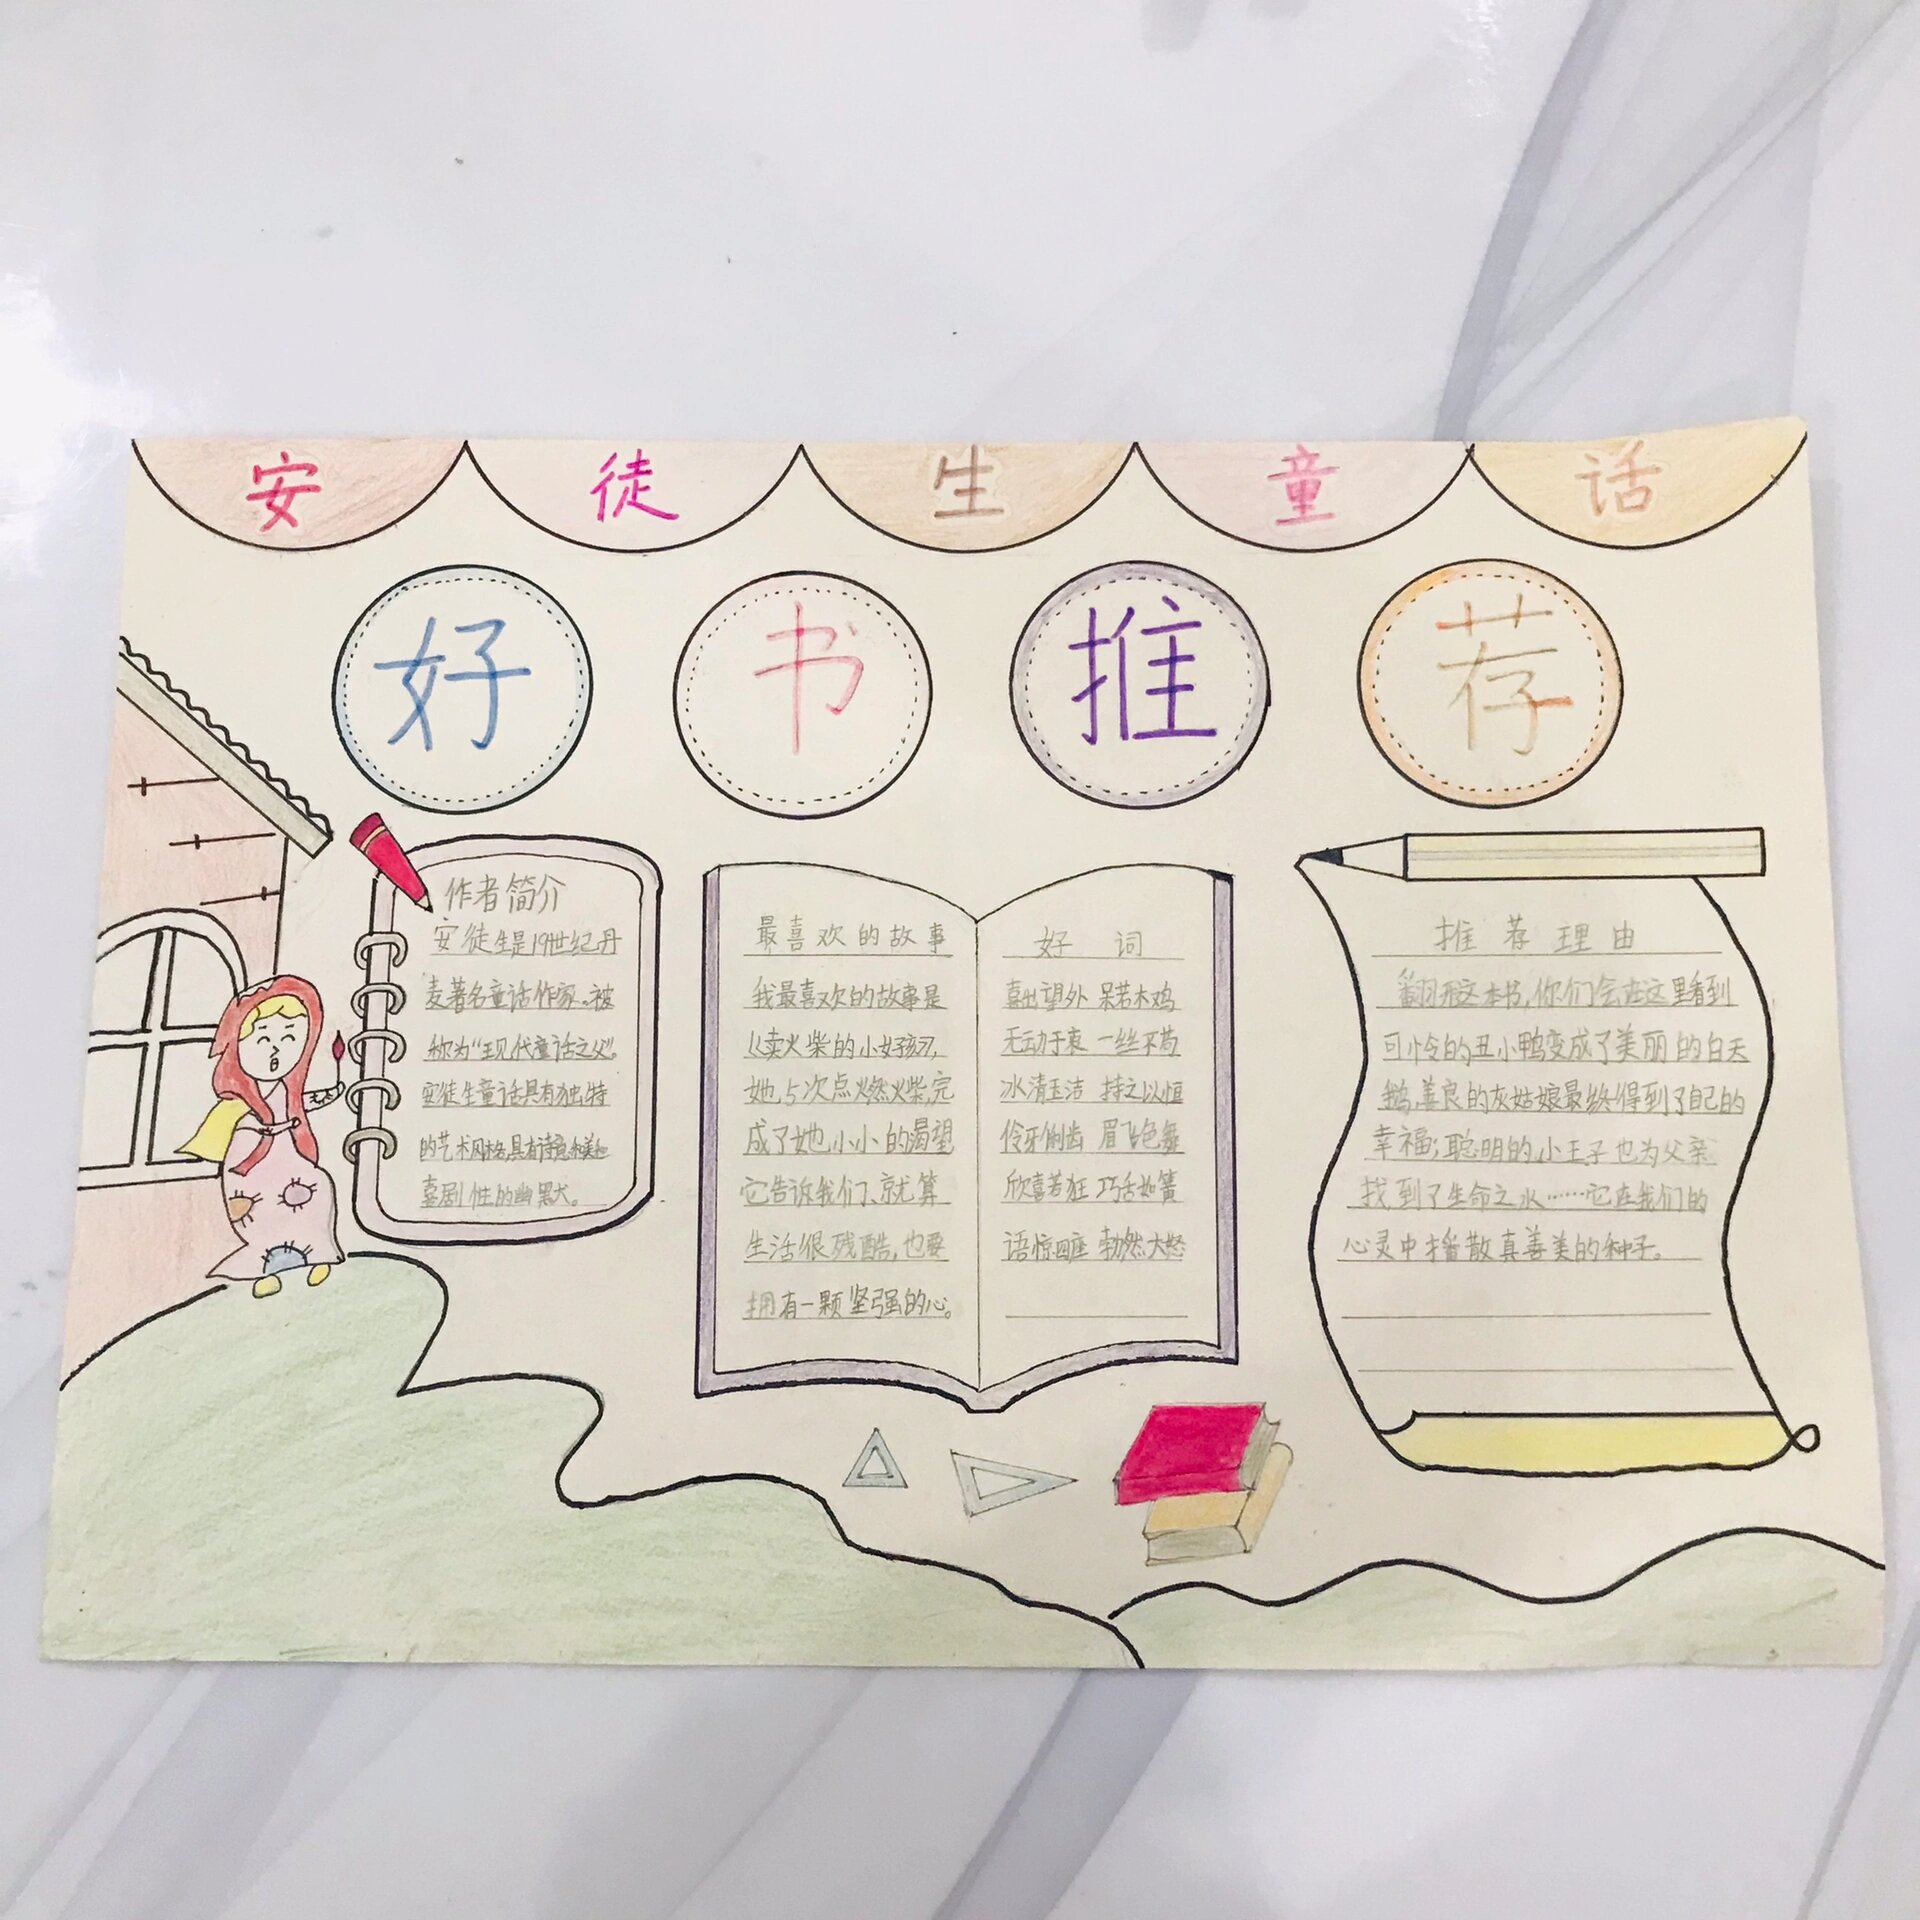 安徒生童话
好书推荐
作者简介
安徒生是19世纪丹
麦著名童话作家。被
称为“现代童话之父”。
安徒生童话具有独特
的艺术风格,具有诗意和美和
喜剧性的幽默。
最喜欢的故事
我最喜欢的故事是
《卖火柴的小女孩》,
她5次点燃火柴,完
成了她小小的渴望
它告诉我们、就算
生活很残酷,也要
拥有一颗坚强的心。
好词
喜出望外 呆若木鸡
无动于衷 一丝不苟
冰清玉洁 持之以恒
伶牙俐齿 眉飞色舞
欣喜若狂 巧舌如簧
语惊四座 勃然大怒
推荐理由
翻开这本书,你们会在这里看到
可怜的丑小鸭变成了美丽的白天
鹅,善良的灰姑娘最终得到了自己的
幸福;聪明的小王子也为父亲
找到了生命之水……它在我们的
心灵中播散真善美的种子。